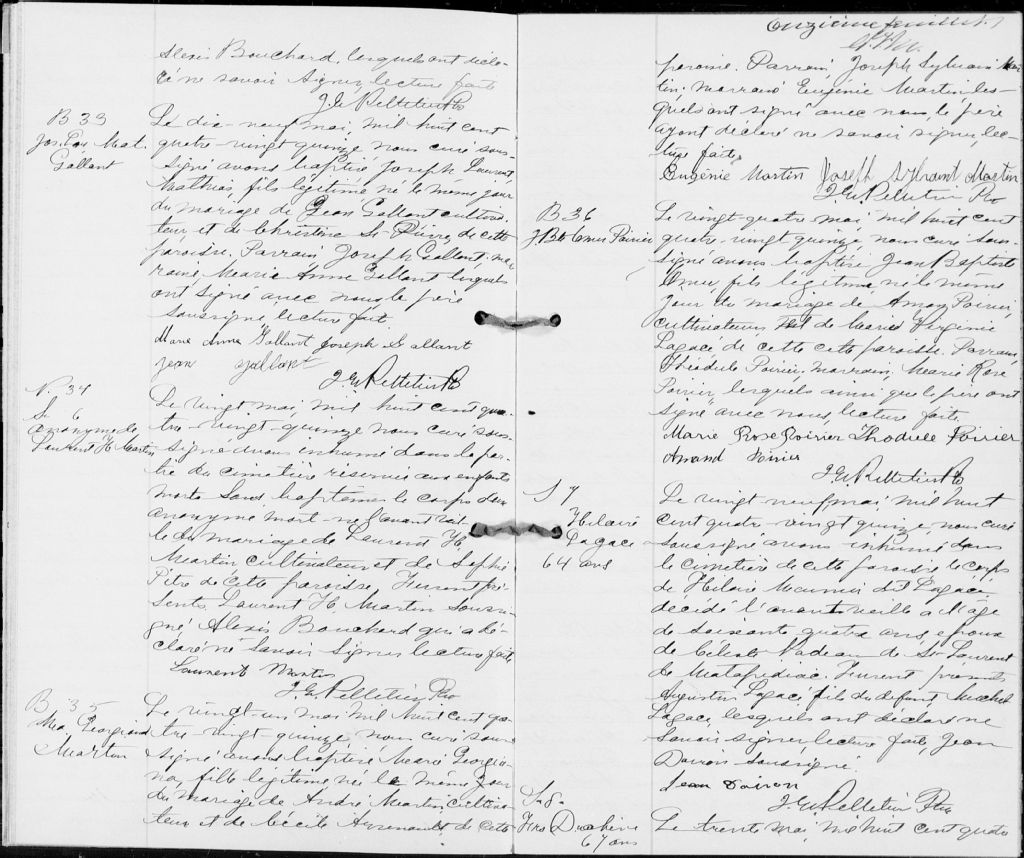 Alexis Bouchard, lesquels ont décla-
ré ne savoir signer, lecture faite
J. E. Pelletier Ptre
B 33
Jos. Mat.
Gallant
Le dix-neuf mai, mil huit cent
quatre-vingt quinze nous curé sous-
signé avons baptisé Joseph Laurent
Mathias, fils légitime né le même jour
du mariage de Jean Gallant cultiva-
teur et de Christine St-Pierre, de cette
paroisse. Parrain Joseph Gallant, mar-
raine Marie Anne Gallant lesquels
ont signé avec nous le père
soussigné lecture fait.
Marie Anne Gallant Joseph Gallant
Jean Gallant
J. E. Pelletier Ptre
N. 34
S. 6
anonyme de
Laurent H. Martin
Le vingt mai, mil huit cent qua-
tre-vingt-quinze nous curé sous-
signé avons inhumé dans la par-
tie du cimetière réservée aux enfants
morts sans baptême le corps d'un
anonyme mort-né l'avant veil-
le du mariage de Laurent H.
Martin cultivateur et de Sophie
Pitre de cette paroisse. Furent pré-
sents Laurent H. Martin soussi-
gné Alexis Bouchard qui a dé-
claré ne savoir signer lecture faite,
Laurent Martin
J. E. Pelletier Ptre
B. 35
Mie Georgiana
Martin
Le vingt-un mai mil huit cent qua-
tre vingt quinze, nous curé sous-
signé avons baptisé Marie Georgia-
na, fille légitime, née le même jour
du mariage de André Martin cultiva-
teur et de Cécile Arsenault de cette
Onzième feuillet
paroisse. Parrain, Joseph Sylvain Mar-
tin, marraine Eugénie Martin, les-
quels ont signé avec nous, le père
ayant déclaré ne savoir signer, lec-
ture faite,
Eugénie Martin Joseph Sylvant Martin
J. E. Pelletier Ptre
B 36
J Bte Omer Poirier
Le vingt-quatre mai, mil huit cent
quatre-vingt quinze, nous curé sous-
signé avons baptisé Jean Baptiste
Omer, fils légitime né le même
jour du mariage de Poirier
cultivateur et de Marie Virginie
Lagacé de cette cette paroisse. Parrain,
Théodule Poirier, marraine, Marie Rose
Poirier, lesquels ainsi que le père ont
signé avec nous, lecture faite,
Marie Rose Poirier Thodule Poirier
Amand Poirier
J. E. Pelletier Ptre
S 7
Hilaire
Lagacé
64 ans
Le vingt neuf mai, mil huit
cent quatre-vingt quinze, nous curé
soussigné avons inhumé dans
le cimetière de cette paroisse le corps
de Hilaire Meunier dit Lagacé,
décédé l'avant veille à l'âge
de soixante quatre ans époux
de Céleste Nadeau de St Laurent
de Matapédiac. Furent présents
Augustin Lagacé, fils du défunt, Michel
Lagacé, lesquels ont déclaré ne
savoir signer, lecture faite, Jean
Doiron soussigné.
Jean Doiron
J. E. Pelletier Ptre
S. 8
67 ans
Le trente mai, mil huit cent quatre